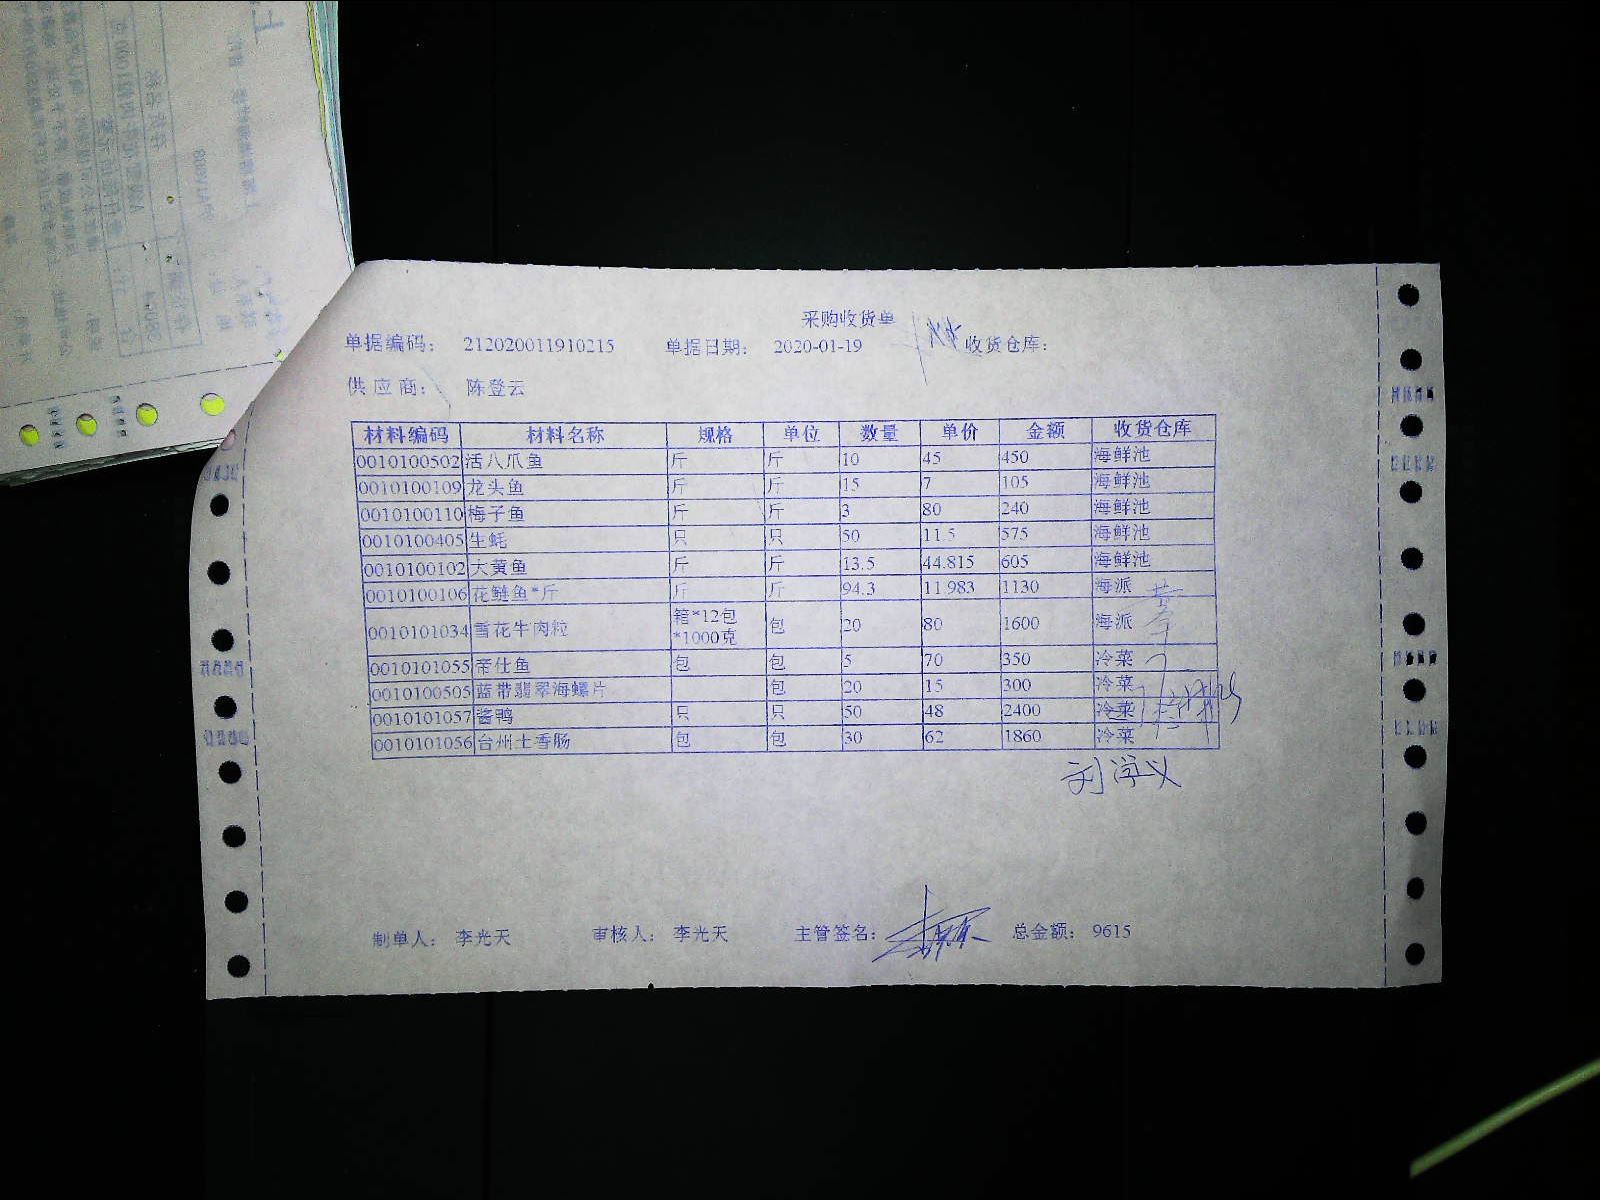 采购收货单
单据编码： 212020011910215 单据日期： 2020-01-19 收货仓库：
供应商： 陈登云
材料编码 材料名称 规格 单位 数量 单价 金额 收货仓库
0010100502 活八爪鱼 斤 斤 10 45 450 海鲜池
0010100109 龙头鱼 斤 斤 15 7 105 海鲜池
0010100110 梅子鱼 斤 斤 3 80 240 海鲜池
0010100405 生蚝 只 只 50 11.5 575 海鲜池
0010100102 大黄鱼 斤 斤 13.5 44.815 605 海鲜池
0010100106 花鲢鱼*斤 斤 斤 94.3 11.983 1130 海派
0010101034 雪花牛肉粒 箱*12包*1000克 包 20 80 1600 海派
0010101055 帝仕鱼 包 包 5 70 350 冷菜
0010100505 蓝带翡翠海螺片 包 20 15 300 冷菜
0010101057 酱鸭 只 只 50 48 2400 冷菜
0010101056 台州土香肠 包 包 30 62 1860 冷菜
刘学义
制单人： 李光天 审核人： 李光天 主管签名： 总金额： 9615